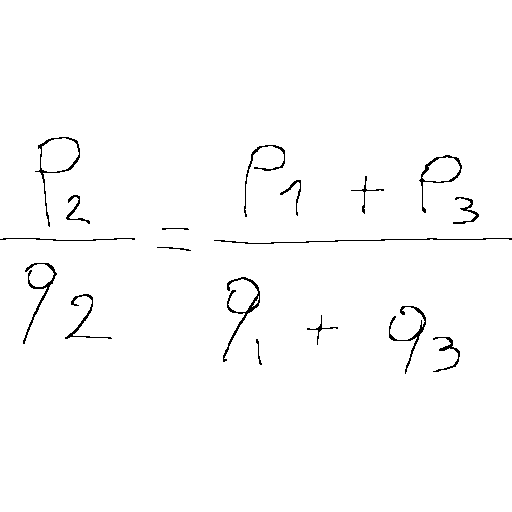 \frac{p_2}{q_2} = \frac{p_1 + p_3}{q_1 + q_3}